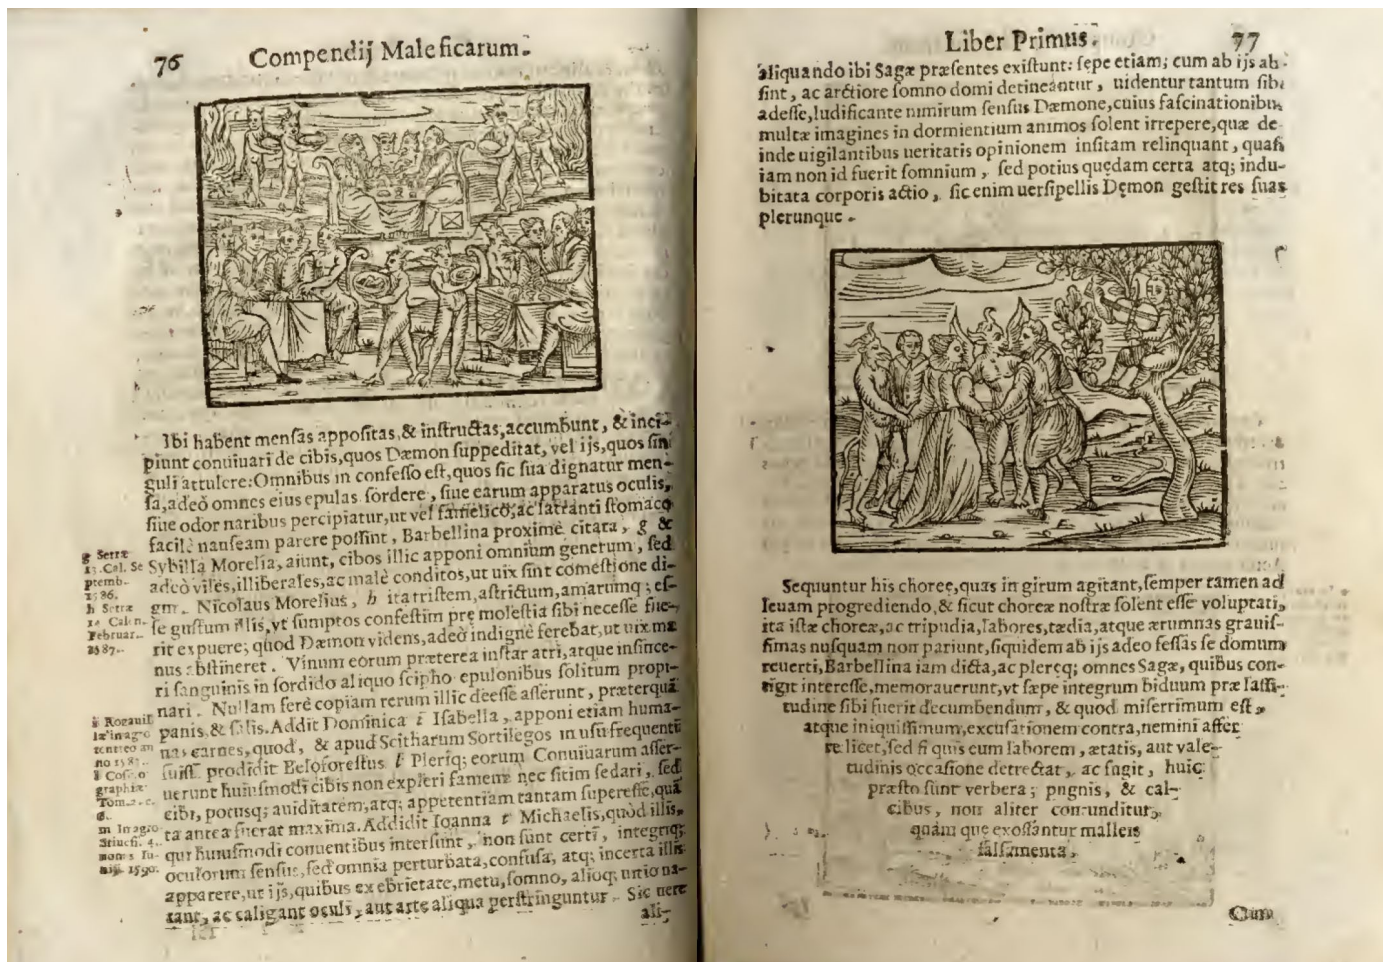 76
Compendij Maleficarum.
Ibi habent mensas appositas, & instructas, accumbunt, & inci-
piunt conuiuari de cibis, quos Dæmon suppeditat, vel ijs, quos sin
guli attulere: Omnibus in confesso est, quos sic sua dignatur men-
sa, adeò omnes eius epulas sordere, siue earum apparatus oculis,
siue odor naribus percipiatur, ut vel famelico, ac latranti stomaco
facilè nauseam parere possint, Barbellina proximè citata, g &
Sybilla Morelia, aiunt, cibos illic apponi omnium generum, sed
adeò viles, illiberales, ac malè conditos, ut uix sint comestione di-
gni. Nicolaus Morelius, h ita tristem, astrictum, amarumq; es-
se gustum illis, vt sumptos confestim prę molestia sibi necesse fue-
rit expuere; quod Dæmon videns, adeò indignè ferebat, ut uix ma
nus abstineret. Vinum eorum præterea instar atri, atque insince-
ri sanguinis in sordido aliquo scipho epulonibus solitum propi-
nari. Nullam ferè copiam rerum illic deesse asserunt, præterquã
panis, & salis. Addit Dominica i Isabella, apponi etiam huma-
nas carnes, quod, & apud Scitharum Sortilegos in usu frequenti
fuisse prodidit Beloforestus l Plerisq; eorum Conuiuarum asser-
uerunt huiusmodi cibis non expleri famem nec sitim sedari, sed
cibi, potusq; auiditatem, atq; appetentiam tantam superesse, quã
ta antea fuerat maxima. Addidit Ioanna Michaelis, quòd illis,
qui huiusmodi conuentibus intersunt, non sunt certi, integriq;
oculorum sensus, sed omnia perturbata, confusa, atq; incerta illis
apparere, ut ijs, quibus ex ebrietate, metu, somno, alioq;
tant, ac caligant oculi, aut arte aliqua perstringuntur. Sic
ali-
g Serræ
13. Cal. Se
ptemb.
1586.
h Serræ
Calen.
Februar.
1587.
i
no
l Cos
graphiæ
Tom.
m In agro
4.
1590.
Liber Primus.
77
aliquando ibi Sagæ præsentes existunt: sępe etiam; cum ab ijs ab
sint, ac arctiore somno domi detineantur, uidentur tantum sibi
adesse, ludificante nimirum sensus Dæmone, cuius fascinationibus
multæ imagines in dormientium animos solent irrepere, quæ de-
inde uigilantibus ueritatis opinionem insitam relinquant, quasi
iam non id fuerit somnium, sed potius quędam certa atq; indu-
bitata corporis actio, sic enim uersipellis Dęmon gestit res suas
plerunque.
Sequuntur his choreę, quas in girum agitant, semper tamen ad
leuam progrediendo, & sicut choreæ nostræ solent esse voluptati,
ita istæ choreæ, ac tripudia, labores, tædia, atque ærumnas grauis-
simas nusquam non pariunt, siquidem ab ijs adeo fessas se domum
reuerti, Barbellina iam dicta, ac pleręq; omnes Sagæ, quibus con-
tigit interesse, memorauerunt, vt sæpe integrum biduum præ lassi-
tudine sibi fuerit decumbendum, & quod miserrimum est,
atque iniquissimum, excusationem contra, nemini affer
re licet, sed si quis eum laborem, ætatis, aut vale-
tudinis occasione detrectat, ac fugit, huic
præsto sunt verbera; pugnis, & cal-
cibus, non aliter contunditur,
quàm que exossantur malleis
salsamenta.
Cum